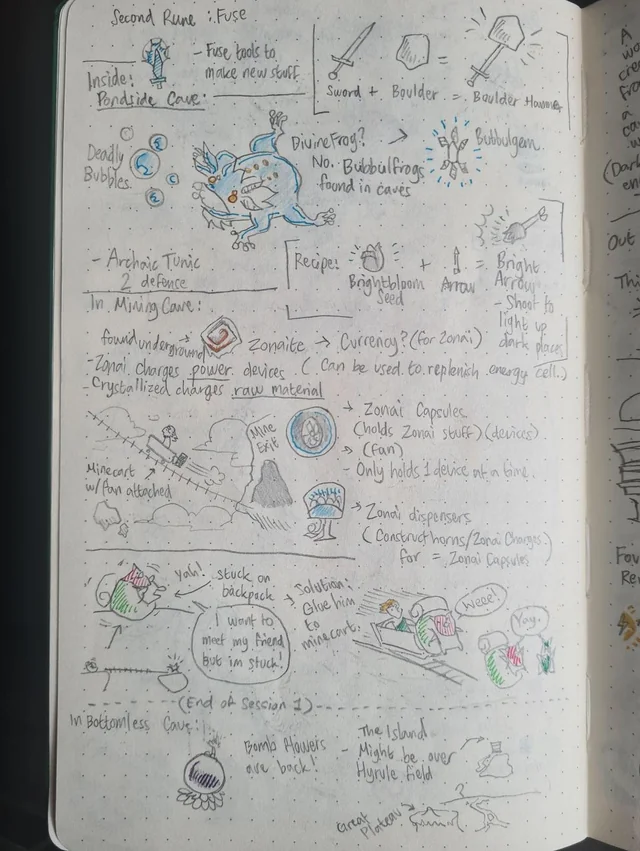 Second Rune : Fuse
- Fuse tools to
make new stuff
Sword + Boulder = Boulder Hammer
Inside:
Pondside Cave:
Deadly
Bubbles
Divine Frog?
No. Bubbulfrogs
found in caves
Bubbulgem
- Archaic Tunic
2 defence
Recipe:
Brightbloom
Seed
+
Arrow
=
Bright
Arrow
- Shoot to
light up
dark places
In Mining Cave:
found underground
Zonaite → Currency? (for Zonai)
- Zonai charges power devices. (Can be used to replenish energy cell.)
- Crystallized charges raw material
Mine
Exit
Minecart
w/ fan attached
→ Zonai Capsules
(holds Zonai stuff) (devices)
(fan)
- Only holds 1 device at a time.
→ Zonai dispensers
(Construct horns/Zonai Charges)
for = Zonai Capsules
Yah!
stuck on
backpack
I want to
meet my friend
But im stuck!
Solution:
Glue him
to
minecart.
Weee!
Yay.
(End of Session 1)
In Bottomless Cave:
Bomb flowers
are back!
- The Island
Might be over
Hyrule field
?
Great
Plateau
A
Out
Thi